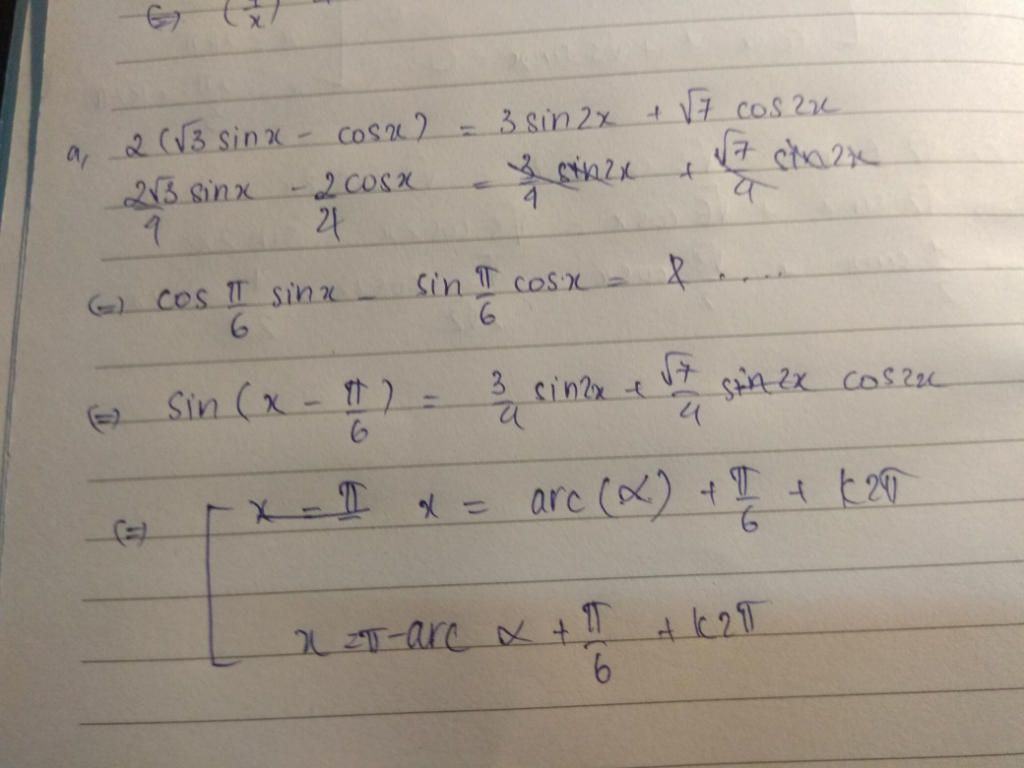 (=) (1/x)
a, 2(√3 sinx - cosx) = 3sin2x + √7 cos2x
2√3/4 sinx - 2/4 cosx = 3/4 sin2x + √7/4 sin2x
(=) cos π/6 sinx - sin π/6 cosx = ....
(=) sin(x - π/6) = 3/4 sin2x + √7/4 sin2x cos2x
(=) x = π x = arc(α) + π/6 + k2π
x = π - arc α + π/6 + k2π